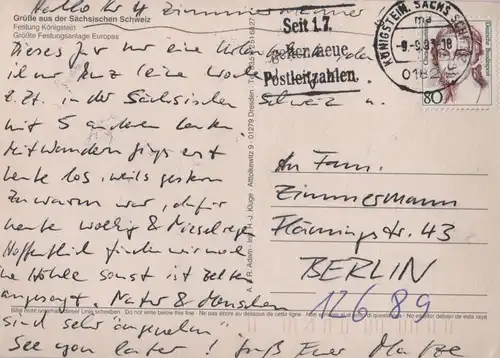 Hallo Ihr 4 Zimmermänner
Grüße aus der Sächsischen Schweiz
Festung Königstein
Größte Festungsanlage Europas
Dieses Jahr nur eine
nur kurz eine Woche
z. Zt. in der Sächsischen Schweiz u.
mit 5 anderen Leuten.
mit Wandern fing's erst
heute los, weil's gestern
zu warm war, dafür
heute wolkig & Nieselregen
Hoffentlich finden wir noch
ne Höhle sonst ist Zelten
angesagt. Natur & Menschen
sind sehr "angenehm"
See you later! Gruß Euer
Bitte nicht unter diese Linie schreiben · Do not write below this line · Ne pas écrire au dessous de cette ligne · Non scrivere sotto questa linea · No escribir debajo de esta raya
A. & R. Adam · Ing. H.-J. Kluge · Alttolkewitz 9 · 01279 Dresden
Seit 1.7.
gelten neue
Postleitzahlen.
KÖNIGSTEIN, SÄCHS SCHWEIZ
ma
-9.-9.93-18
80
An Fam.
Zimmermann
Flämingstr. 43
BERLIN
12689